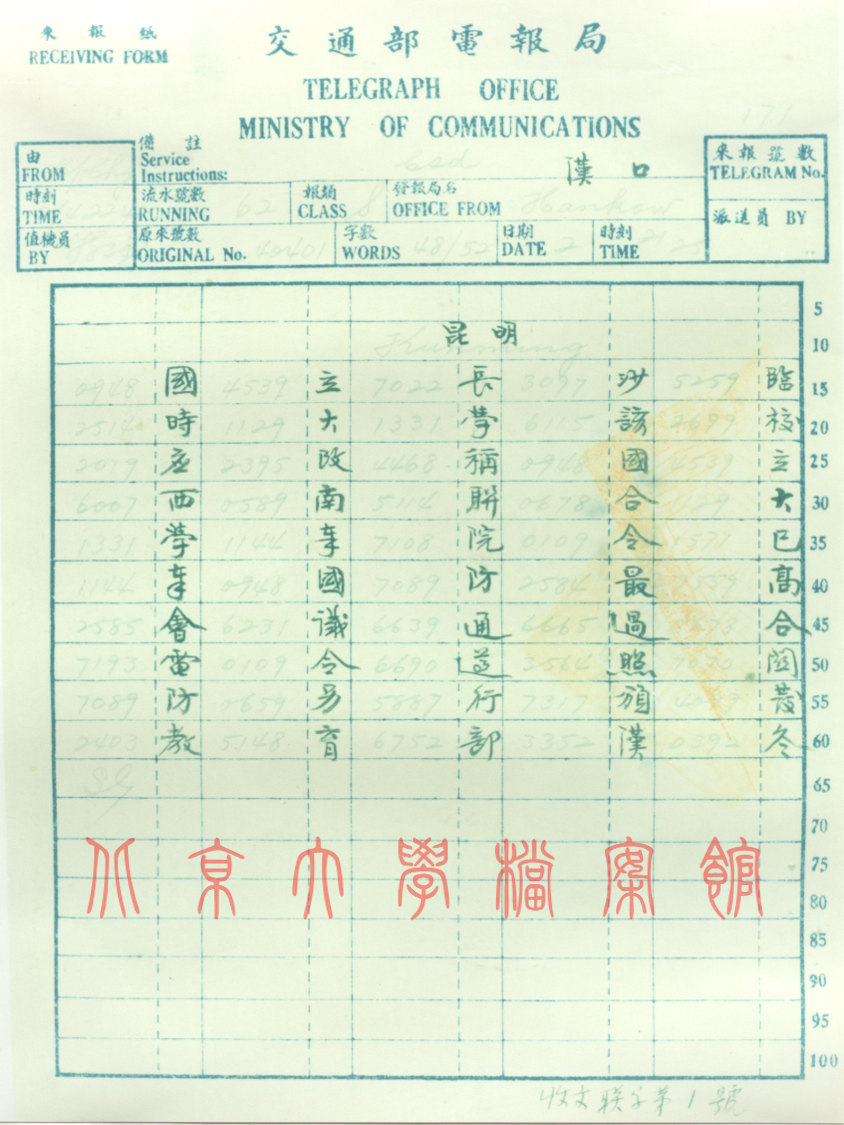 來報紙
RECEIVING FORM
交通部電報局
TELEGRAPH OFFICE
MINISTRY OF COMMUNICATIONS
171
由 FROM
備註 Service Instructions:
漢口
來報號數 TELEGRAM No.
時刻 TIME
流水號數 RUNNING 62
報類 CLASS S
發報局名 OFFICE FROM Hankow
派送員 BY
值機員 BY
原來號數 ORIGINAL No. 40401
字數 WORDS 48/52
日期 DATE 2
時刻 TIME
昆明
Kunming
0948 國 4539 立 7022 長 3097 沙 5259 臨
2514 時 1129 大 1331 學 6115 該 2699 校
2019 应 2395 改 4468 稱 0948 國 4539 立
6007 西 0589 南 5114 聯 0678 合 1129 大
1331 學 1144 奉 7108 院 0109 令 1571 已
1144 奉 0948 國 7089 防 2584 最 7559 高
2585 會 6231 議 6639 通 6665 過 0678 合
7193 電 0109 令 6690 遵 3564 照 7070 關
7089 防 0659 另 5887 行 7317 頒 4099 發
2403 教 5148 育 6752 部 3352 漢 0392 冬
5
10
15
20
25
30
35
40
45
50
55
60
65
70
75
80
85
90
95
100
北京大學檔案館
收文聯字第1號